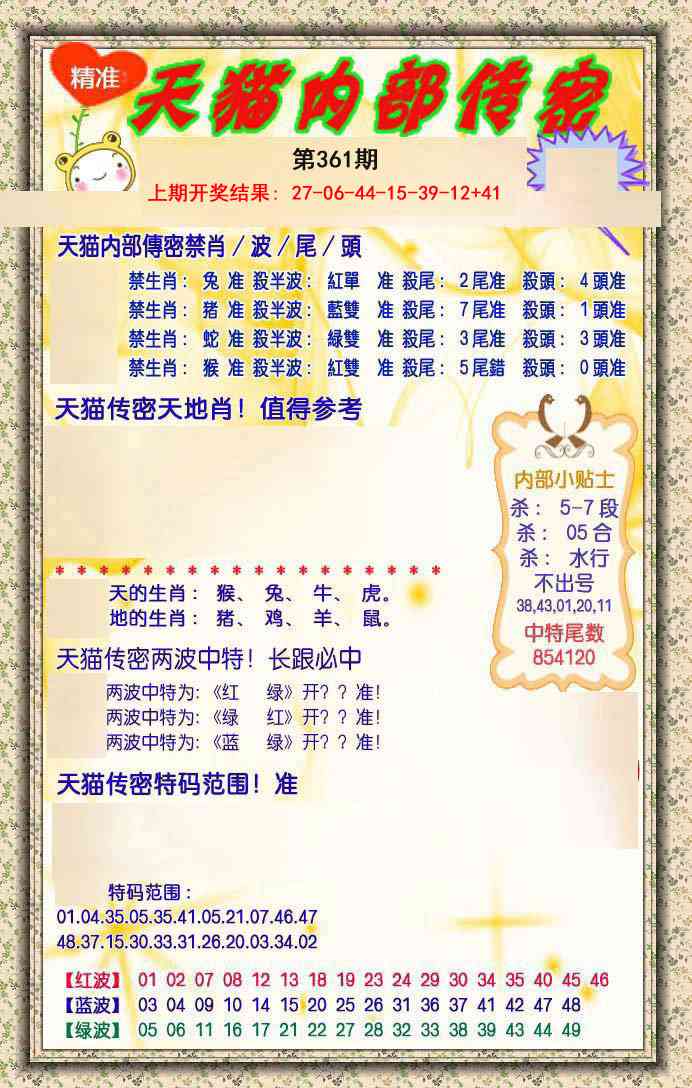 精准
天猫内部传密
第361期
上期开奖结果: 27-06-44-15-39-12+41
天猫内部傳密禁肖/波/尾/頭
禁生肖: 兔 准 殺半波: 紅單 准 殺尾: 2尾准 殺頭: 4頭准
禁生肖: 猪 准 殺半波: 藍雙 准 殺尾: 7尾准 殺頭: 1頭准
禁生肖: 蛇 准 殺半波: 緑雙 准 殺尾: 3尾准 殺頭: 3頭准
禁生肖: 猴 准 殺半波: 紅雙 准 殺尾: 5尾錯 殺頭: 0頭准
天猫传密天地肖! 值得参考
内部小贴士
杀: 5-7段
杀: 05合
杀: 水行
不出号
38,43,01,20,11
中特尾数
854120
******************
天的生肖: 猴、 兔、 牛、 虎。
地的生肖: 猪、 鸡、 羊、 鼠。
天猫传密两波中特! 长跟必中
两波中特为:《红 绿》开? ? 准!
两波中特为:《绿 红》开? ? 准!
两波中特为:《蓝 绿》开? ? 准!
天猫传密特码范围! 准
特码范围:
01.04.35.05.35.41.05.21.07.46.47
48.37.15.30.33.31.26.20.03.34.02
【红波】 01 02 07 08 12 13 18 19 23 24 29 30 34 35 40 45 46
【蓝波】 03 04 09 10 14 15 20 25 26 31 36 37 41 42 47 48
【绿波】 05 06 11 16 17 21 22 27 28 32 33 38 39 43 44 49